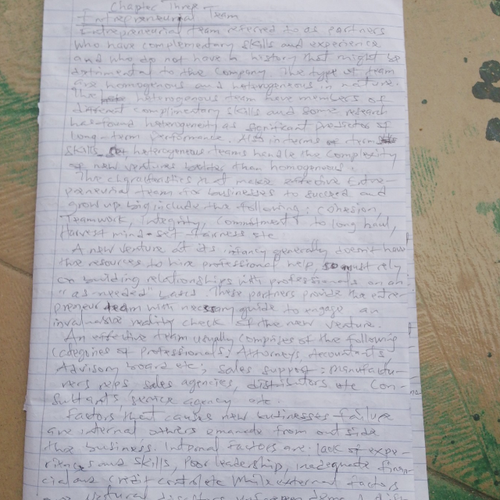 Chapter Three
Entrepreneurial Team
Entrepreneurial team referred to as partners
who have complementary skills and experience
and who do not have a history that might be
detrimental to the company. The type of team
are homogenous and heterogeneous in nature.
The heterogeneous team have members of
complimentary skills and some research
has found heterogeneity as significant predictor of
long-term performance. Also in terms of
skills, teams handle the complexity
of new ventures better than homogenous.
The characteristics that makes effective Entre-
preneurial team for businesses to succeed and
grow up big include the following: cohesion,
Teamwork, Integrity, Commitment to long haul,
Harvest mind-set fairness etc
A new venture at its infancy generally doesn't have
the resources to hire professional help, so must rely
on building relationships with professionals on an
"as-needed" basis. These partners provide the entre-
preneur team with necessary guide to engage an
invaluable reality check of the new venture
An effective team usually comprises of the following
categories of professionals; Attorneys, Accountants,
Advisory board etc; sales support: manufactu-
rers reps, sales agencies, distributors etc Con-
sultants service agency etc
Factors that cause new businesses failure
are internal others emanate from out side
the business. Internal factors are: lack of expe-
riences and skills, poor leadership, inadequate finan-
cial and Credit control etc While external factors
are Natural disasters